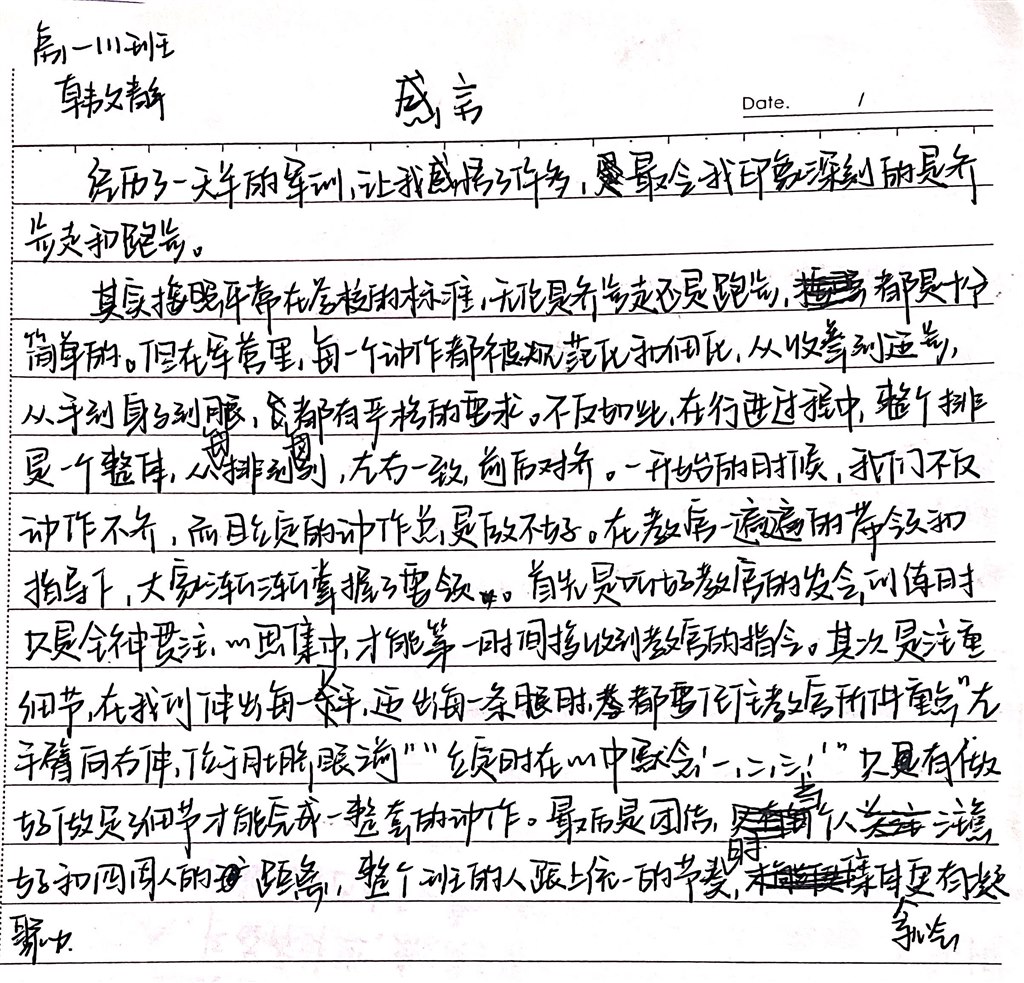 高一111班
韩文静
感言
Date. /
经历了一天半的军训,让我感悟了许多,最令我印象深刻的是齐
步走和跑步。
其实按照平常在学校的标准,无论是齐步走还是跑步,都是十分
简单的。但在军营里,每一个动作都被规范化和细化,从收拳到迈步,
从手到身子到腿,都有严格的要求。不仅如此,在行进过程中,整个排
是一个整体,从每排到每列,左右一致,前后对齐。一开始的时候,我们不仅
动作不齐,而且立定的动作总是做不好。在教官一遍遍的带领和
指导下,大家渐渐掌握了要领。首先是听好教官的发令,训练时
只是全神贯注,心思集中,才能第一时间接收到教官的指令。其次是注重
细节,在我们伸出每一次手,迈出每一条腿时,都要记住教官所讲重点"左
手臂向右伸,位于肚脐眼前""立定时在心中默念'一,二,三!'"只有做
好做足了细节才能完成一整套的动作。最后是团结,当个人注意
好和四周人的距离,整个班的人跟上统一的节奏时,排更有凝
聚力